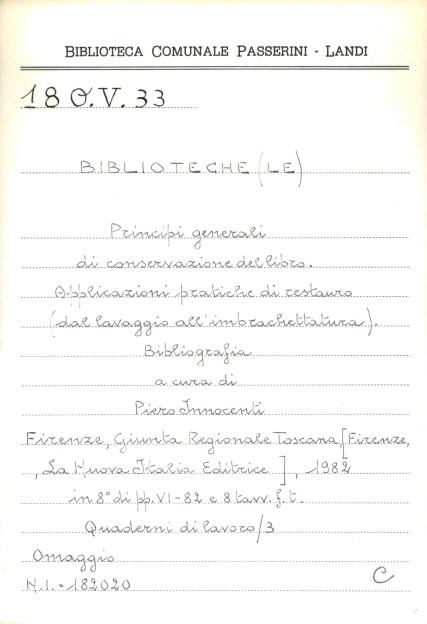 BIBLIOTECA COMUNALE PASSERINI - LANDI
18 O.V. 33
BIBLIOTECHE (LE)
Principi generali
di conservazione del libro.
Applicazioni pratiche di restauro
(dal lavaggio all'imbrachettatura).
Bibliografia
a cura di
Piero Innocenti
Firenze, Giunta Regionale Toscana, [Firenze,
, La Nuova Italia Editrice ], 1982
in 8° di pp. VI-82 e 8 tavv. f. t.
Quaderni di lavoro/3
Omaggio
N.I. - 182020
C